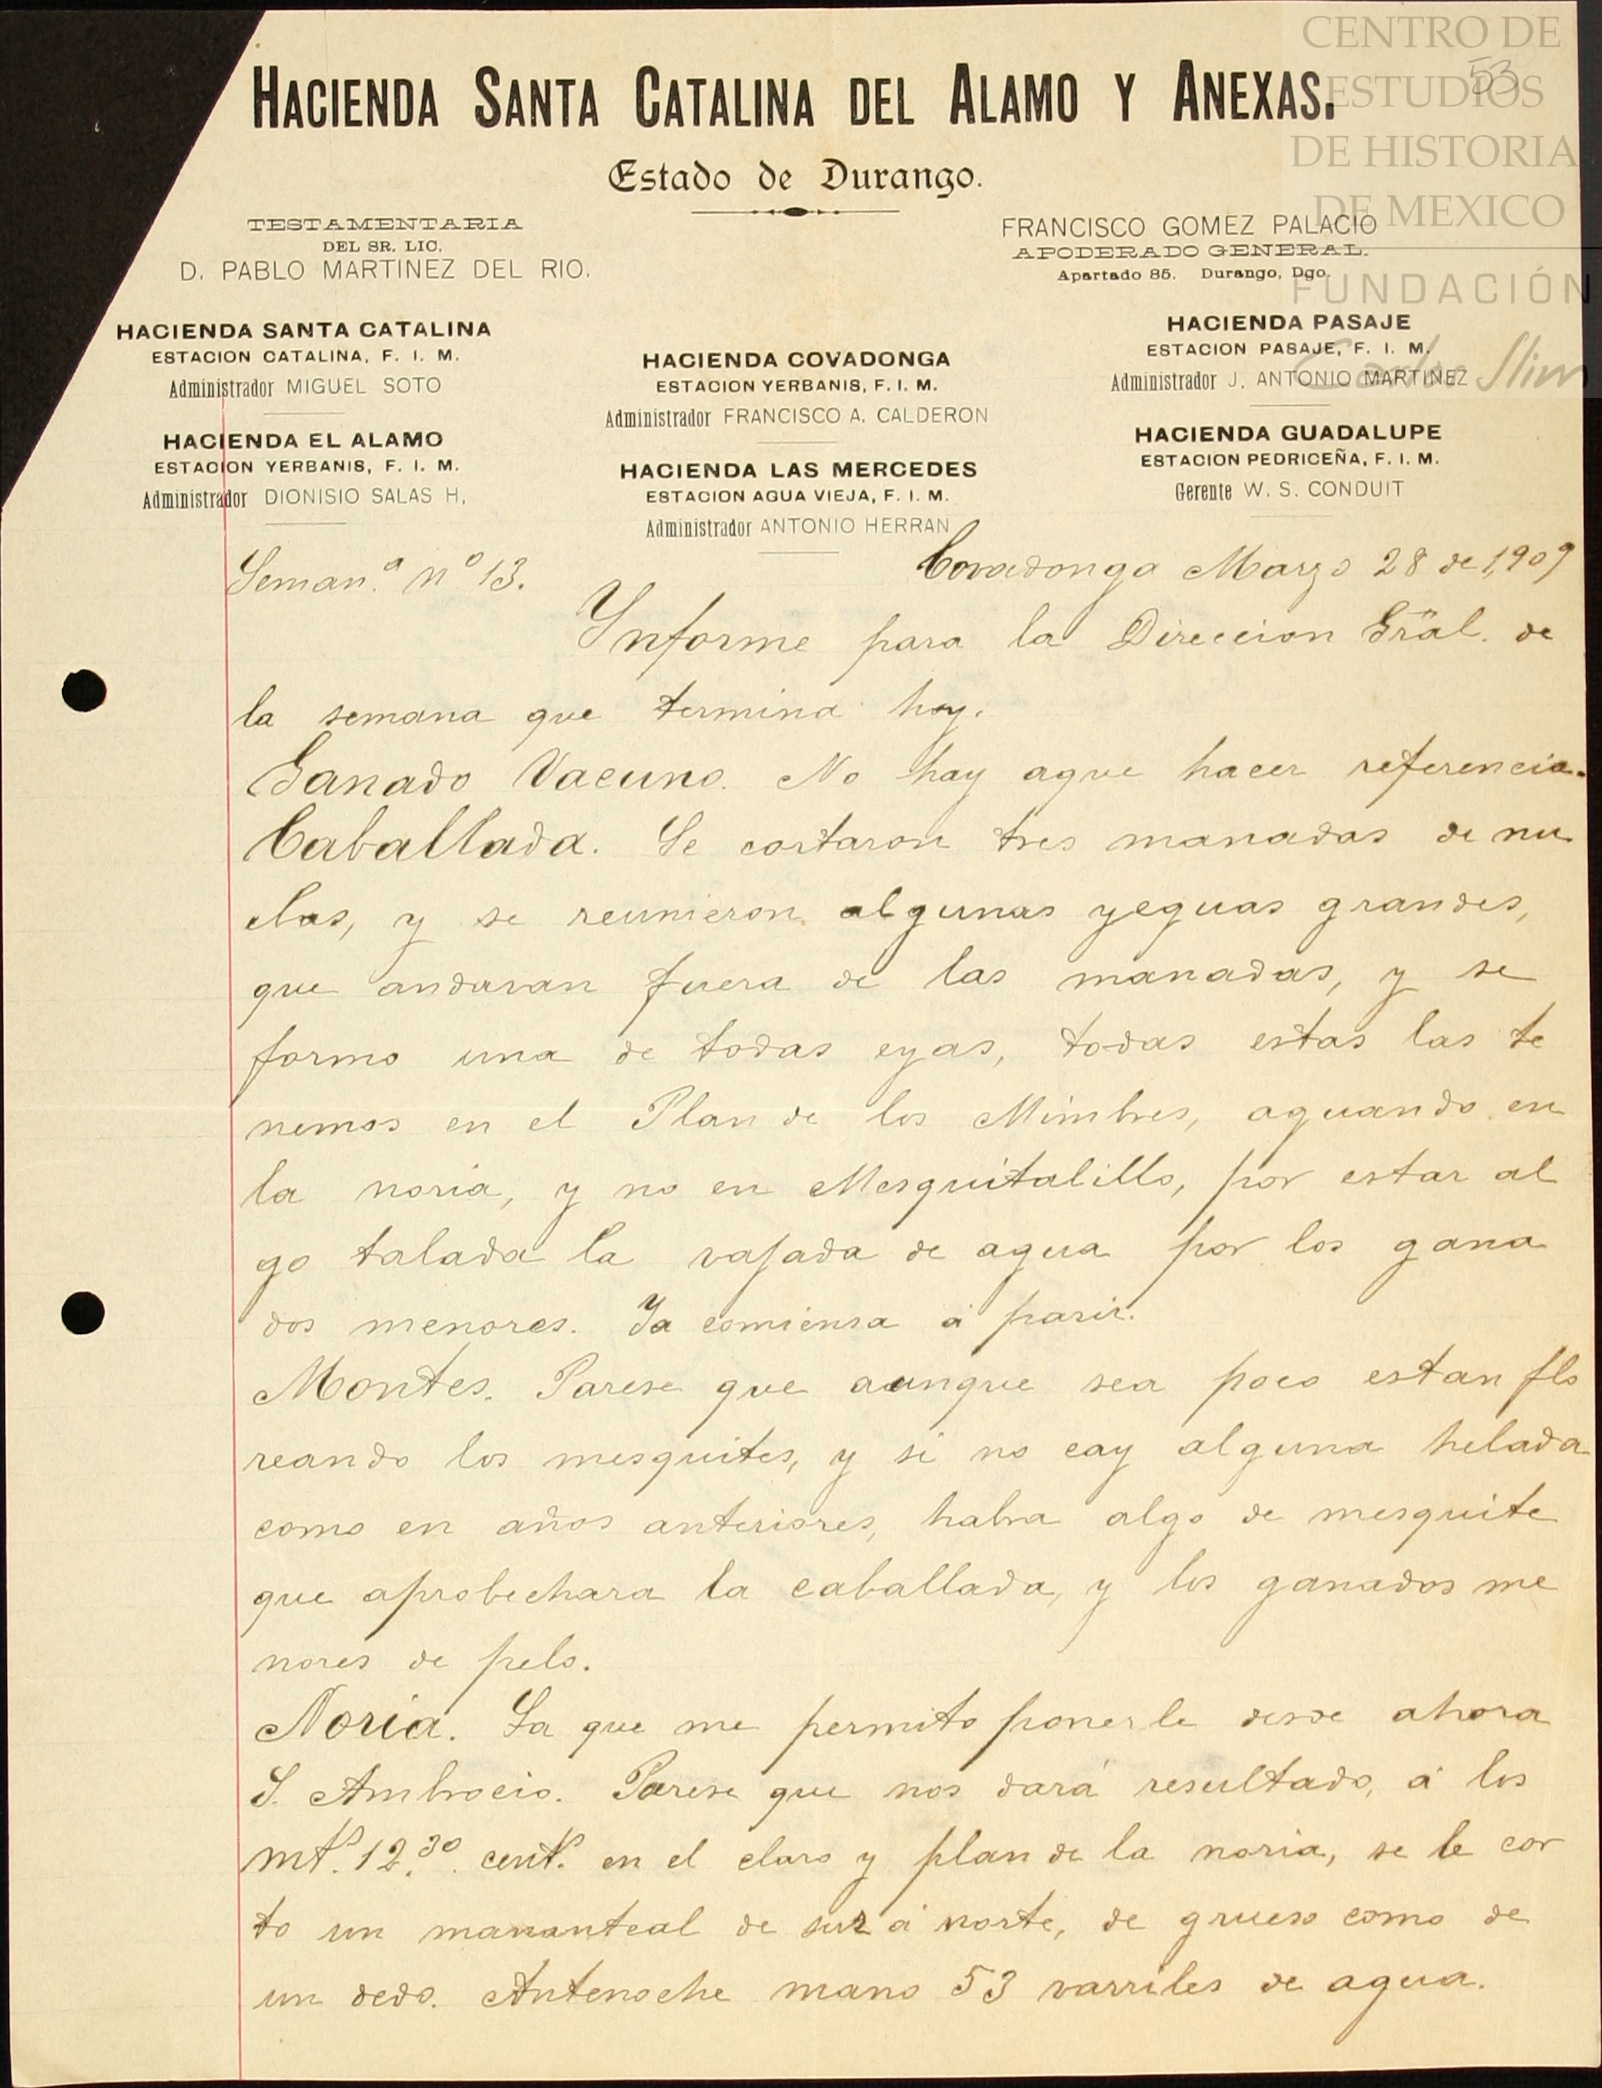 CENTRO DE
ESTUDIOS
DE HISTORIA
DE MEXICO
FUNDACIÓN
Carlos Slim
53
HACIENDA SANTA CATALINA DEL ALAMO Y ANEXAS.
Estado de Durango.
TESTAMENTARIA
DEL SR. LIC.
D. PABLO MARTINEZ DEL RIO.
FRANCISCO GOMEZ PALACIO
APODERADO GENERAL.
Apartado 85. Durango, Dgo.
HACIENDA SANTA CATALINA
ESTACION CATALINA, F. I. M.
Administrador MIGUEL SOTO
HACIENDA EL ALAMO
ESTACION YERBANIS, F. I. M.
Administrador DIONISIO SALAS H,
HACIENDA COVADONGA
ESTACION YERBANIS, F. I. M.
Administrador FRANCISCO A. CALDERON
HACIENDA LAS MERCEDES
ESTACION AGUA VIEJA, F. I. M.
Administrador ANTONIO HERRAN
HACIENDA PASAJE
ESTACION PASAJE, F. I. M.
Administrador J. ANTONIO MARTINEZ
HACIENDA GUADALUPE
ESTACION PEDRICEÑA, F. I. M.
Gerente W. S. CONDUIT
Seman.ª nº 13.
Covadonga Marzo 28 de 1,909
Ynforme para la Direccion Gral. de
la semana que termina hoy.
Ganado Vacuno. No hay aque hacer referencia.
Caballada. Se cortaron tres manadas de mu
las, y se reunieron algunas yeguas grandes,
que andavan fuera de las manadas, y se
formo una de todas eyas, todas estas las te
nemos en el Plan de los Mimbres, aguando en
la noria, y no en Mesquitalillo, por estar al
go talada la vajada de agua por los gana
dos menores. Ya comiensa á parir.
Montes. Parese que aunque sea poco estan flo
reando los mesquites, y si no cay alguna helada
como en años anteriores, habra algo de mesquite
que aprobechara la caballada, y los ganados me
nores de pelo.
Noria. La que me permito ponerle desde ahora
S. Ambrocio. Parese que nos dará resultado, á los
mts. 12.30. cents. en el claro y plan de la noria, se le cor
to un mananteal de sur á norte, de grueso como de
un dedo. Antenoche mano 53 varriles de agua.